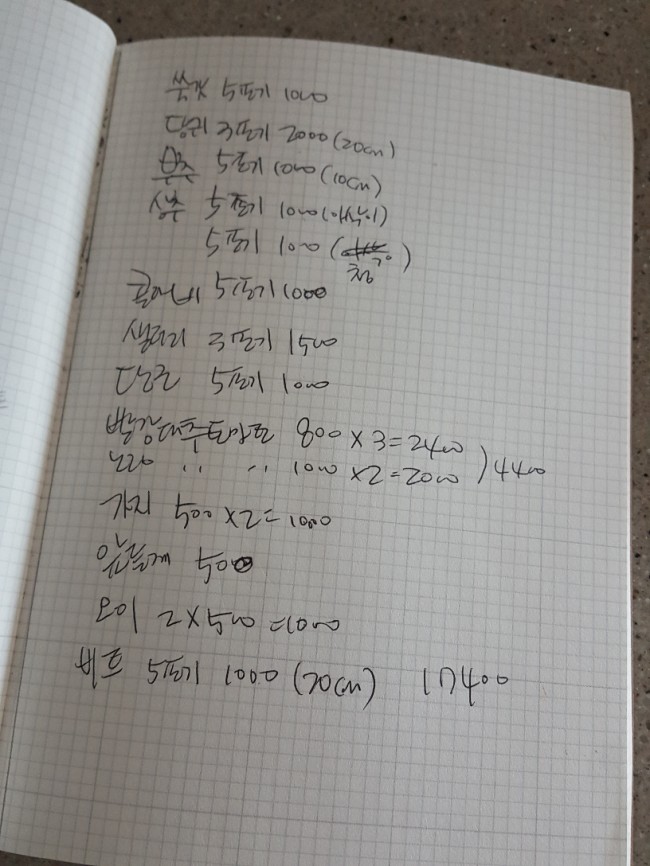 쑥갓 5포기 1000
당귀 3포기 2000 (20cm)
부추 5포기 1000 (10cm)
상추 5포기 1000 (아삭이)
5포기 1000 (청)
콜라비 5포기 1000
샐러리 3포기 1500
당근 5포기 1000
빨강대추토마토 800 × 3 = 2400
노랑 〃 〃 1000 × 2 = 2000 ) 4400
가지 500 × 2 = 1000
잎들깨 500
오이 2 × 500 = 1000
비트 5포기 1000 (20cm) 17400